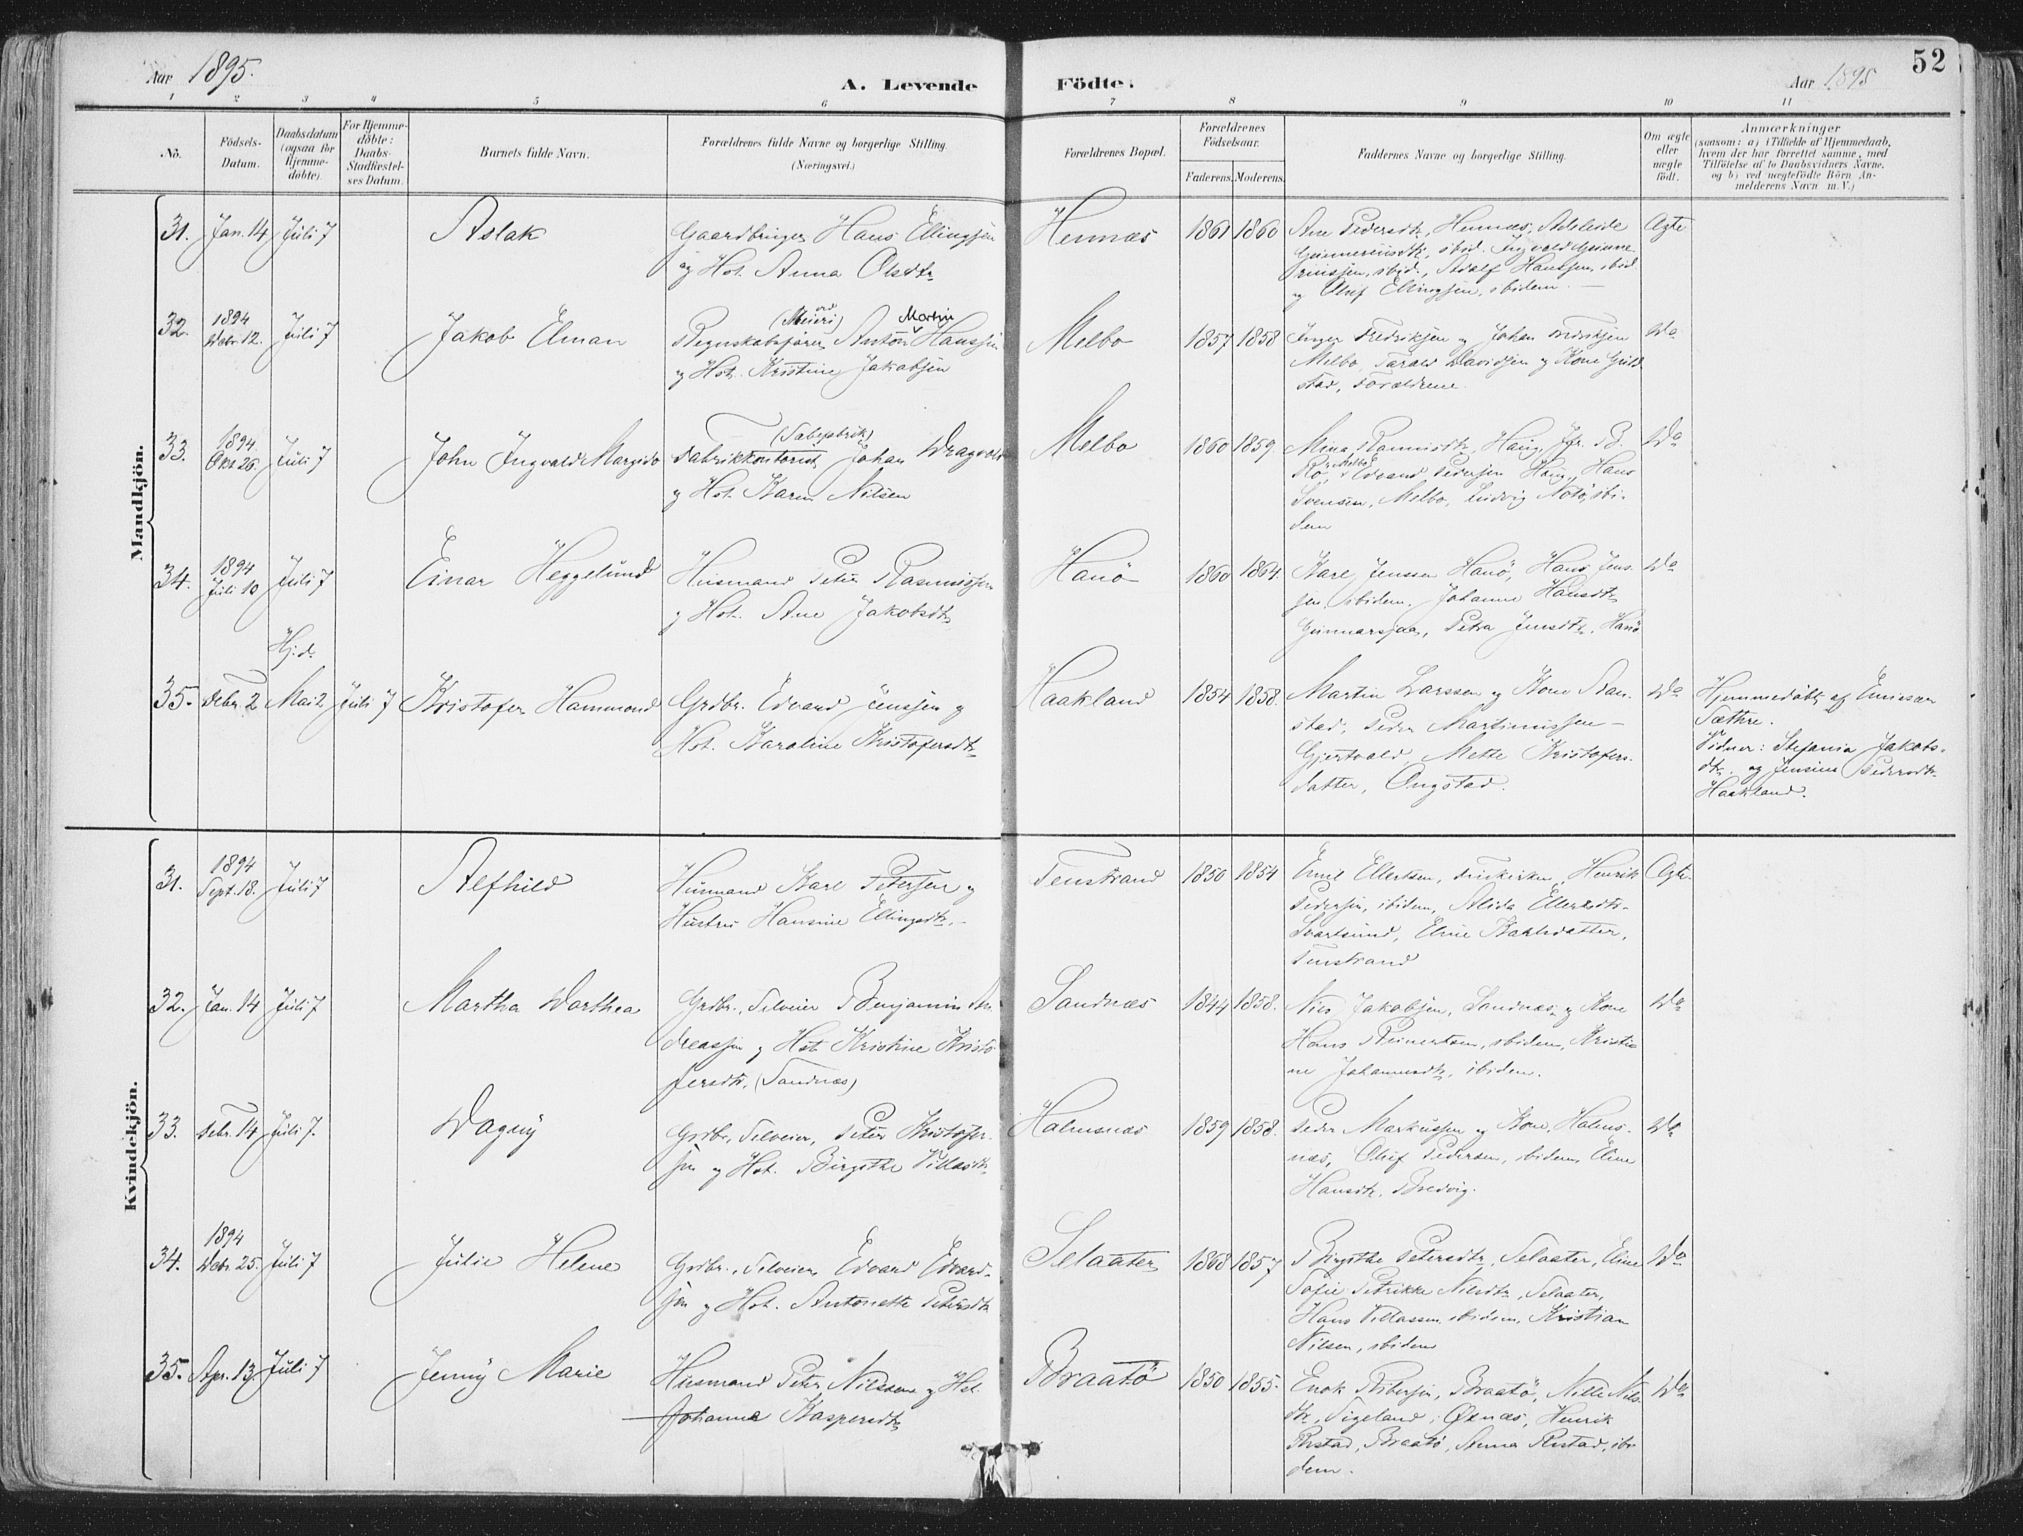 Aar 1895.
A. Levende Födte.
Aar 1895
52
1 2 3 4 5 6 7 8 9 10 11
No.
Födsels-
Datum.
Daabsdatum
(ogsaa for
Hjemme-
döbte).
For Hjemme-
döbte:
Daabs-
Stadfæstel-
ses Datum.
Barnets fulde Navn.
Forældrenes fulde Navne og borgerlige Stilling.
(Næringsvei.)
Forældrenes Bopæl.
Forældrenes
Födselsaar.
Faderens. Moderens.
Faddernes Navne og borgerlige Stilling.
Om ægte
eller
uægte
födt.
Anmærkninger
(saasom: a) i Tilfælde af Hjemmedaab,
hvem der har forrettet samme, med
Tilföielse af to Daabsvidners Navne.
og b) ved uægtefödte Börn An-
melderens Navn m. V.)
Mandkjön.
31. Jan. 14 Juli 7 Aslak
Gaardbruger Hans Ellingsen
og Hst. Anna Olsdtr
Hennæs 1861 1860
Ane Pedersdtr, Hennæs, Adelaide
ibid. Ingvald
ibid., Adolf Hanssen, ibid
og Oluf Ellingsen, ibidem.
Ægte
32. 1894 Debr. 12. Juli 7 Jakob Elman
(Meieri)
Martin
Regnskabsfører Anton Hanssen
og Hst. Kristine Jakobsen
Melbo 1857 1858
Inger Fredriksen og Johan Fredriksen
Melbo, Tarald Davidsen og Kone
stad, Forældrene.
Do
33. 1894 Okt. 26. Juli 7 John Ingvald Margido
Johan Dragvold
og Hst. Karen Nilsen
Melbo 1860 1859.
Haug, Jfr. B.
Edvard Pedersen Haug, Hans
Svensen, Melbo, Ludvig ibi-
dem
Do
34. 1894 Juli 10 Juli 7 Einar Heggelund
Husmand Peter Rasmussen
og Hst. Ane Jakobsdtr
Hanö 1860 1864.
Karl Jenssen Hanö, Hans Jens-
sen, ibidem. Johanna Hansdtr
Gunnarsjaa, Petra Jensdtr. Hanö
Do
Hj.d.
35. Febr. 2 Mai 2 Juli 7 Kristofer Hammond
Grdbr. Edvard Jenssen og
Hst. Karoline Kristofersdtr
Haakland 1854 1858.
Martin Larssen og Kone Ran-
stad, Peder Martinussen
Gjertvold, Mette Kristofers-
datter, Ongstad.
Do
Hjemmedøbt af
Sæthre.
Vidner: Stefania Jakobs-
dtr. og Jensine Pedersdtr
Haakland.
Kvindekjön.
31. 1894 Sept. 18. Juli 7 Alfhild
Husmand Karl Petersen og
Hustru Hansine Ellingsdtr.
Tenstrand 1850 1854
Emil Ellertsen, Henrik
Pedersen, ibidem, Alida Ellertsdtr.
Svartsund, Eline Karlsdatter,
Tenstrand
Ægte
32. Jan. 14 Juli 7 Martha Dorthea
Grdbr., Selveier Benjamin An-
dreassen og Hst. Kristine Kristo-
fersdtr. (Sandnæs)
Sandnæs 1844 1858.
Nils Jakobsen, Sandnæs og Kone
Hans Reinertsen, ibidem, Kristia-
ne Johannesdtr, ibidem.
Do
33. Febr. 14 Juli 7. Dagny
Grdbr., Selveier, Peter Kristofer-
sen og Hst. Birgithe Villasdtr
Holmsnæs 1859 1858.
Peder Markussen og Kone, Holms-
næs, Oluf Pedersen, ibidem, Eline
Hansdtr. Bredvig.
Do
34. 1894 Debr. 25. Juli 7 Julie Helene
Grdbr., Selveier Edvard Edvard-
sen og Hst. Antonette Petersdtr
Selaater 1868 1857
Birgithe Petersdtr, Selaater, Eline
Sofie Petrikke Nilsdtr, Selaater,
Hans Villassen, ibidem, Kristian
Nilsen, ibidem
Do
35. Apr. 13 Juli 7 Jenny Marie
Husmand Peter Nilssen og Hst.
Johanna Kaspersdtr
Braatö 1850 1855.
Enok Braatö, Nils-
dtr, Sigeland, Øxnæs, Henrik
Rustad, Braatö, Anna Rustad, ibi-
dem.
Do